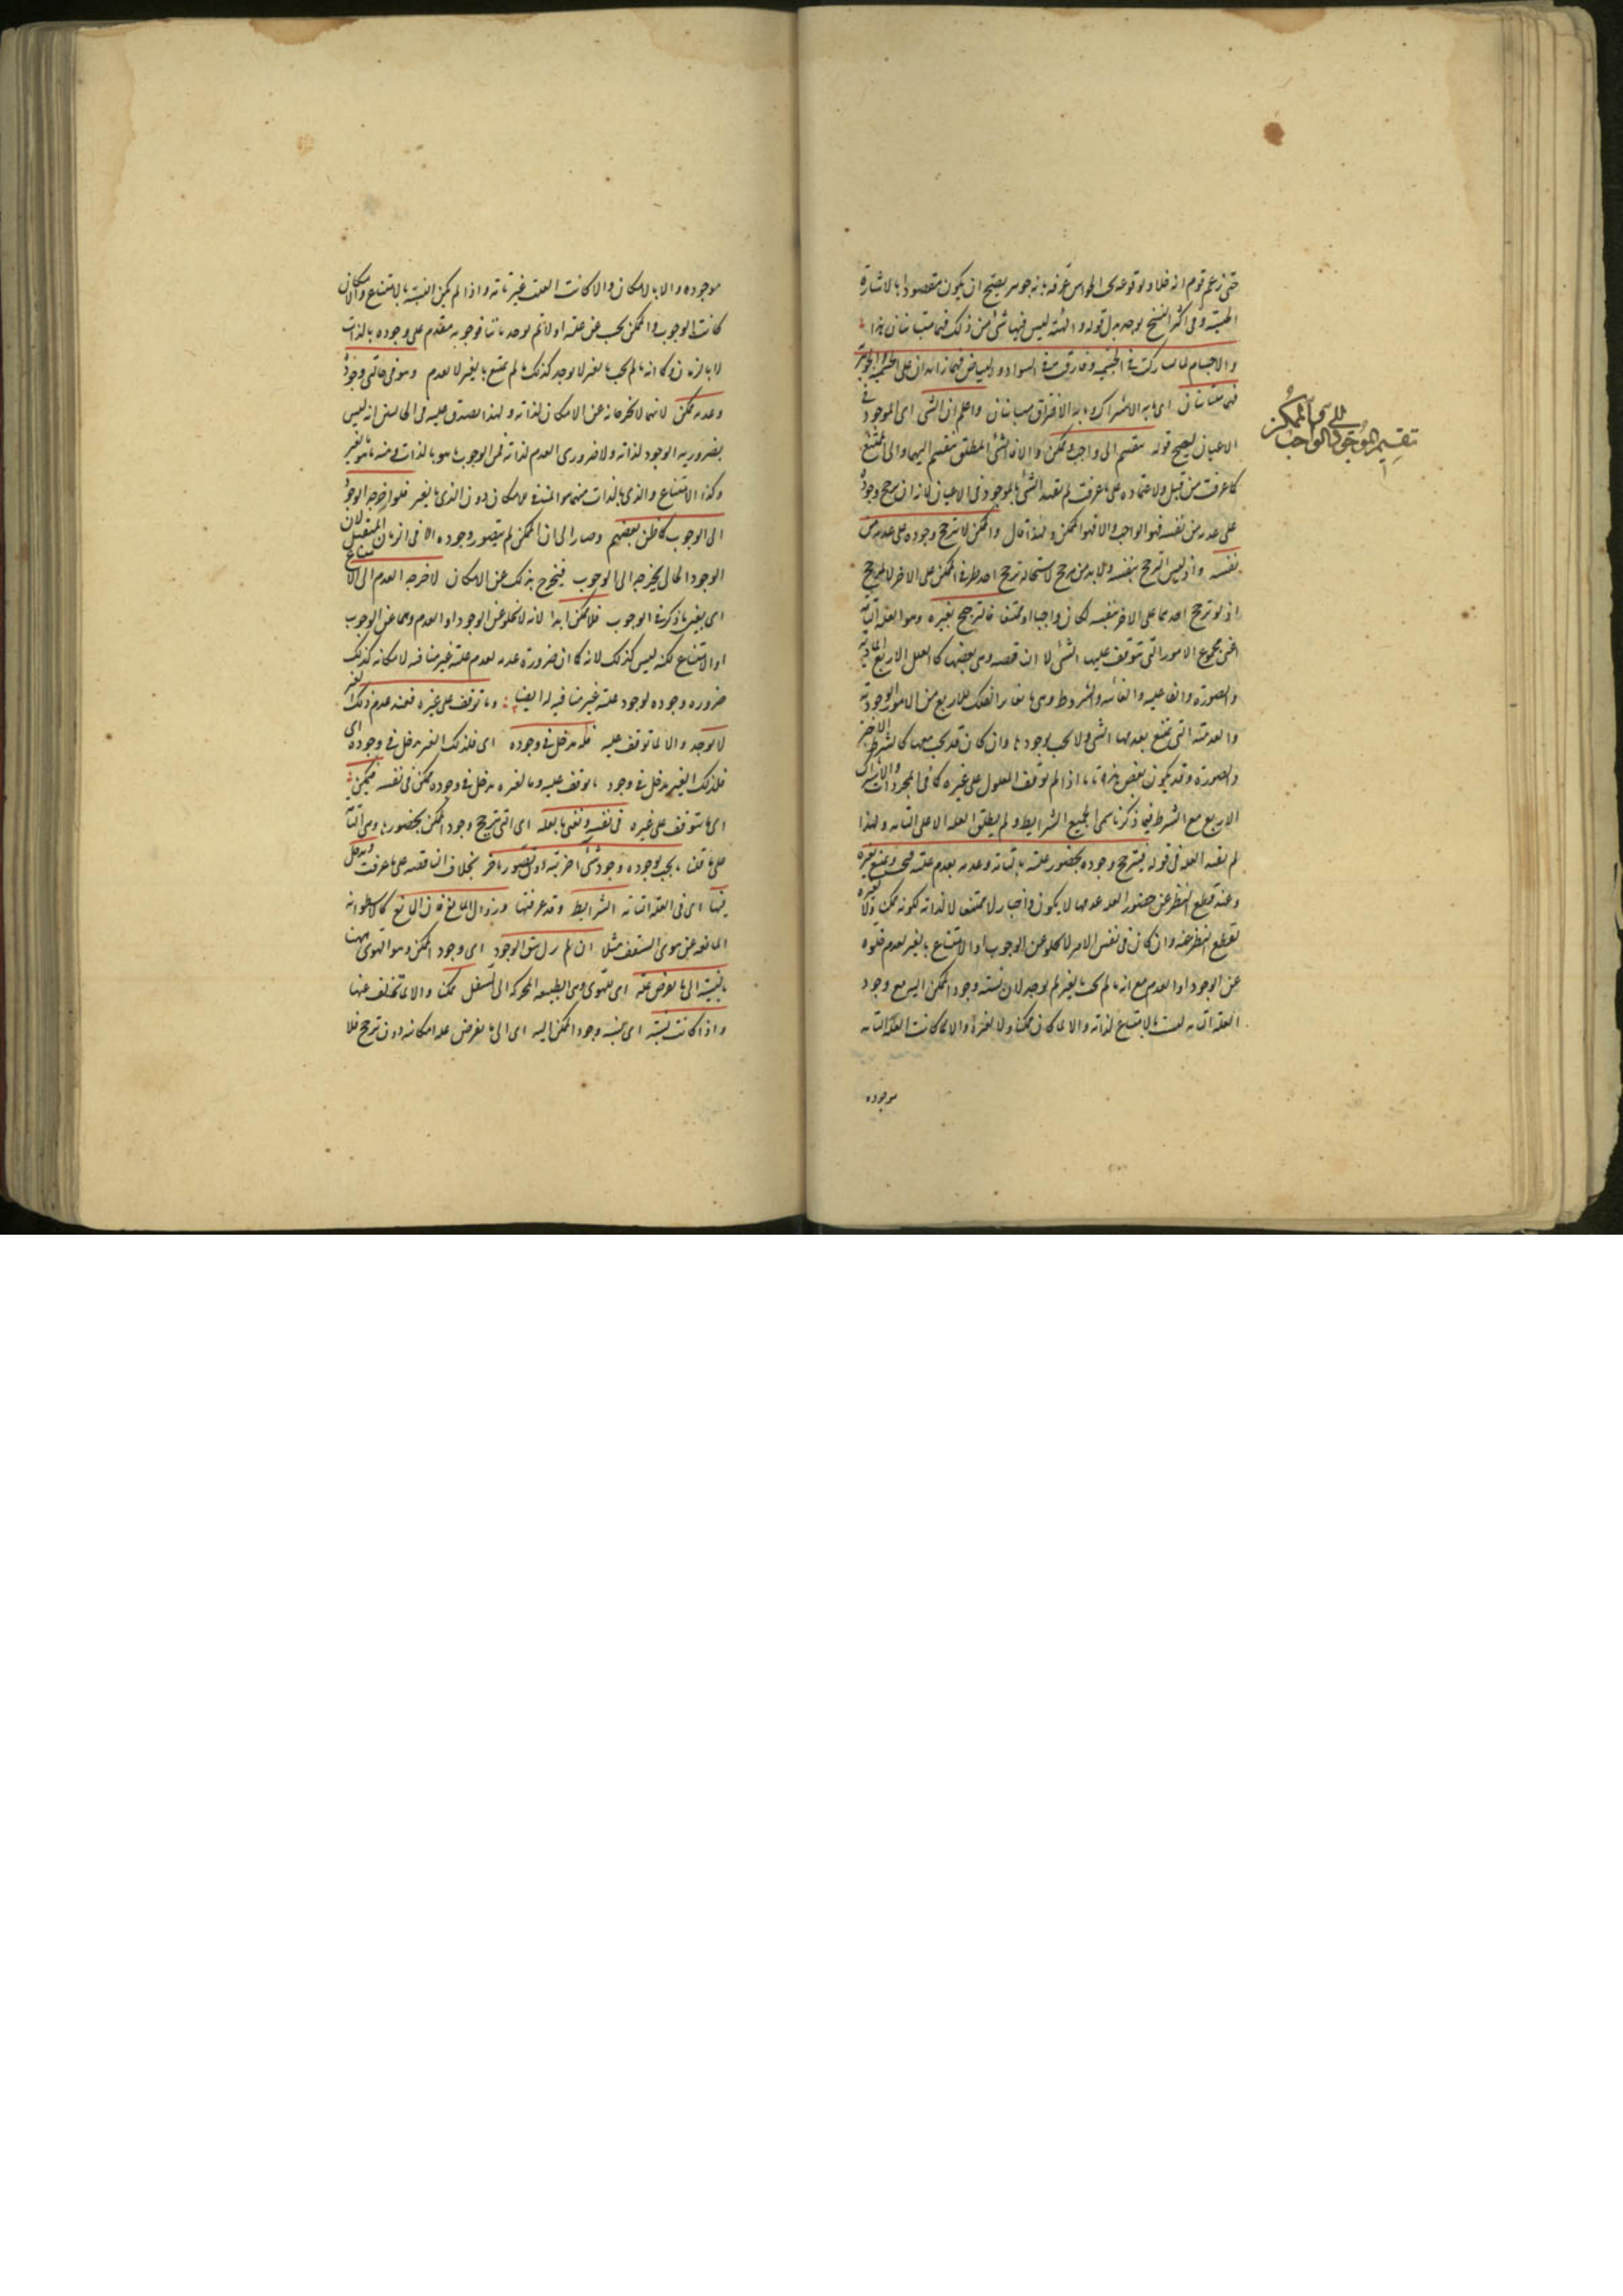 حتى زعم قوم انه خلاء ولوقوعه فى الحواس عرفه بانه جوهر يصح ان يكون مقصودا بالاشارة
الحسية وفى اكثر النسخ يوجد بدل قوله والهيئة ليس فيها شئ من ذلك فهما متباينان هذا
والاجسام لما تشاركت فى الجسمية وفارقت فى السواد والبياض فهما زائدان على الجسمية والجوهرية
فهما متباينان اى ما به الاشتراك وما به الافتراق متباينان واعلم ان الشئ اى الموجود فى
الاعيان ليصح قوله ينقسم الى واجب وممكن والا فالشئ المطلق ينقسم اليهما والى الممتنع
كما عرفت من قبل ولاعتماده على ما عرفت لم يقيد الشئ بالموجود فى الاعيان لانه ان ترجح وجوده
على عدمه من نفسه فهو الواجب والا فهو الممكن ولهذا قال والممكن لا يترجح وجوده على عدمه من
نفسه واذ ليس الترجح بنفسه فلا بد من مرجح لاستحالة ترجح احد طرفى الممكن على الاخر لا لمرجح
اذ لو ترجح احدهما على الاخر بنفسه لكان واجبا او ممتنعا فالترجح بغيره وهو العلة التامة
اعنى مجموع الامور التى يتوقف عليها الشئ لا الناقصة وهى بعضها كالعلل الاربع المادية
والصورة والفاعلية والغائية والشروط وهى ما تغاير العلل الاربع من الامور الوجودية
والعدمية التى يمتنع بعدمها الشئ ولا يجب بوجودها وان كان قد يجب معها كالشرط الاخير
والصورة وقد يكون بعض هذه تامة اذا لم يتوقف المعلول على غيره كما فى المجردات ولاشتراك
الاربع مع الشرط فيما ذكرنا سمى الجميع الشرايط ولم يطلق العلة الا على التامة ولهذا
لم يقيد العلة فى قوله فيترجح وجوده بحضور علته بالتامة وعدمه بعدم علته فيجب ويمتنع بغيره
وعند قطع النظر عن حضور العلة وعدمها لا يكون واجبا ولا ممتنعا لا لذاته لكونه ممكنا ولا لغيره
لقطع النظر عنه وان كان فى نفس الامر لا يخلو عن الوجوب او الامتناع بالغير لعدم خلوه
عن الوجود او العدم مع انه ما لم يجب بالغير لم يوجد لان نسبة وجود الممكن اليس مع وجود
العلة التامة ليست بالامتناع لذاته والا لما كان ممكنا ولا لغيره والا لما كانت العلة التامة
موجوده
تقسيم الوجود الى الواجب والممكن
موجوده ولا بالامكان والا كانت العلة غير تامة واذا لم يكن النسبة بالامتناع والامكان
كانت بالوجوب والممكن يجب عن علته اولا ثم يوجد ثانيا فوجوبه متقدم على وجوده بالذات
لا بالزمان وكما انه ما لم يجب بالغير لا يوجد كذلك ما لم يمتنع بالغير لا يعدم وهو فى حالتى وجوده
وعدمه ممكن لانهما لا يخرجانه عن الامكان لذاته ولهذا يصدق عليه فى الحالتين انه ليس
بضرورى الوجود لذاته ولا ضرورى العدم لذاته فمن الوجوب ما هو بالذات ومنه ما هو بالغير
وكذا الامتناع والذى بالذات منهما هو المنافى للامكان دون الذى بالغير فلو اخرجه الوجود
الى الوجوب كما ظن بعضهم وصار الى ان الممكن لم يتصور وجوده الا فى الزمان المستقبل لان
الوجود الحالى يخرجه الى الوجوب فيخرج بذلك عن الامكان لاخرجه العدم الى الامتناع
اى بعين ما ذكر فى الوجوب فلا ممكن ابدا لانه لا يخلو عن الوجود او العدم وهما عن الوجوب
او الامتناع لكنه ليس كذلك لانه كما ان ضرورة عدمه لعدم علته غير منافية لامكانه كذلك
ضرورة وجوده لوجود علته غير منافية له ايضا وما توقف على غيره فعند عدم ذلك الغير
لا يوجد والا لما توقف عليه فله مدخل فى وجوده اى فلذلك الغير مدخل فى وجوده اى
فلذلك الغير مدخل فى وجود ما توقف عليه وما لغيره مدخل فى وجوده ممكن فى نفسه فيمكن
اى ما يتوقف على غيره فى نفسه ونعنى بالعلة اى التى يترجح وجود الممكن بحضورها وهى التامة
على ما قلنا ما يجب بوجوده وجود شئ اخر بتة دون تصور تاخر بخلاف الناقصة على ما عرفت ويدخل
فيها اى فى العلة التامة الشرايط وقد عرفتها وزوال المانع فان المانع كالاسطوانة
المانعة عن هوى السقف مثلا ان لم يزل يبقى الوجود اى وجود الممكن وهو الهوى ههنا
بالنسبة الى ما يفرض علته اى للهوى وهى الطبيعة المحركة الى السفل ممكنا والا لما تخلف عنها
واذا كانت نسبته اى نسبة وجود الممكن اليه اى الى ما يفرض علة امكانية دون ترجح فلا